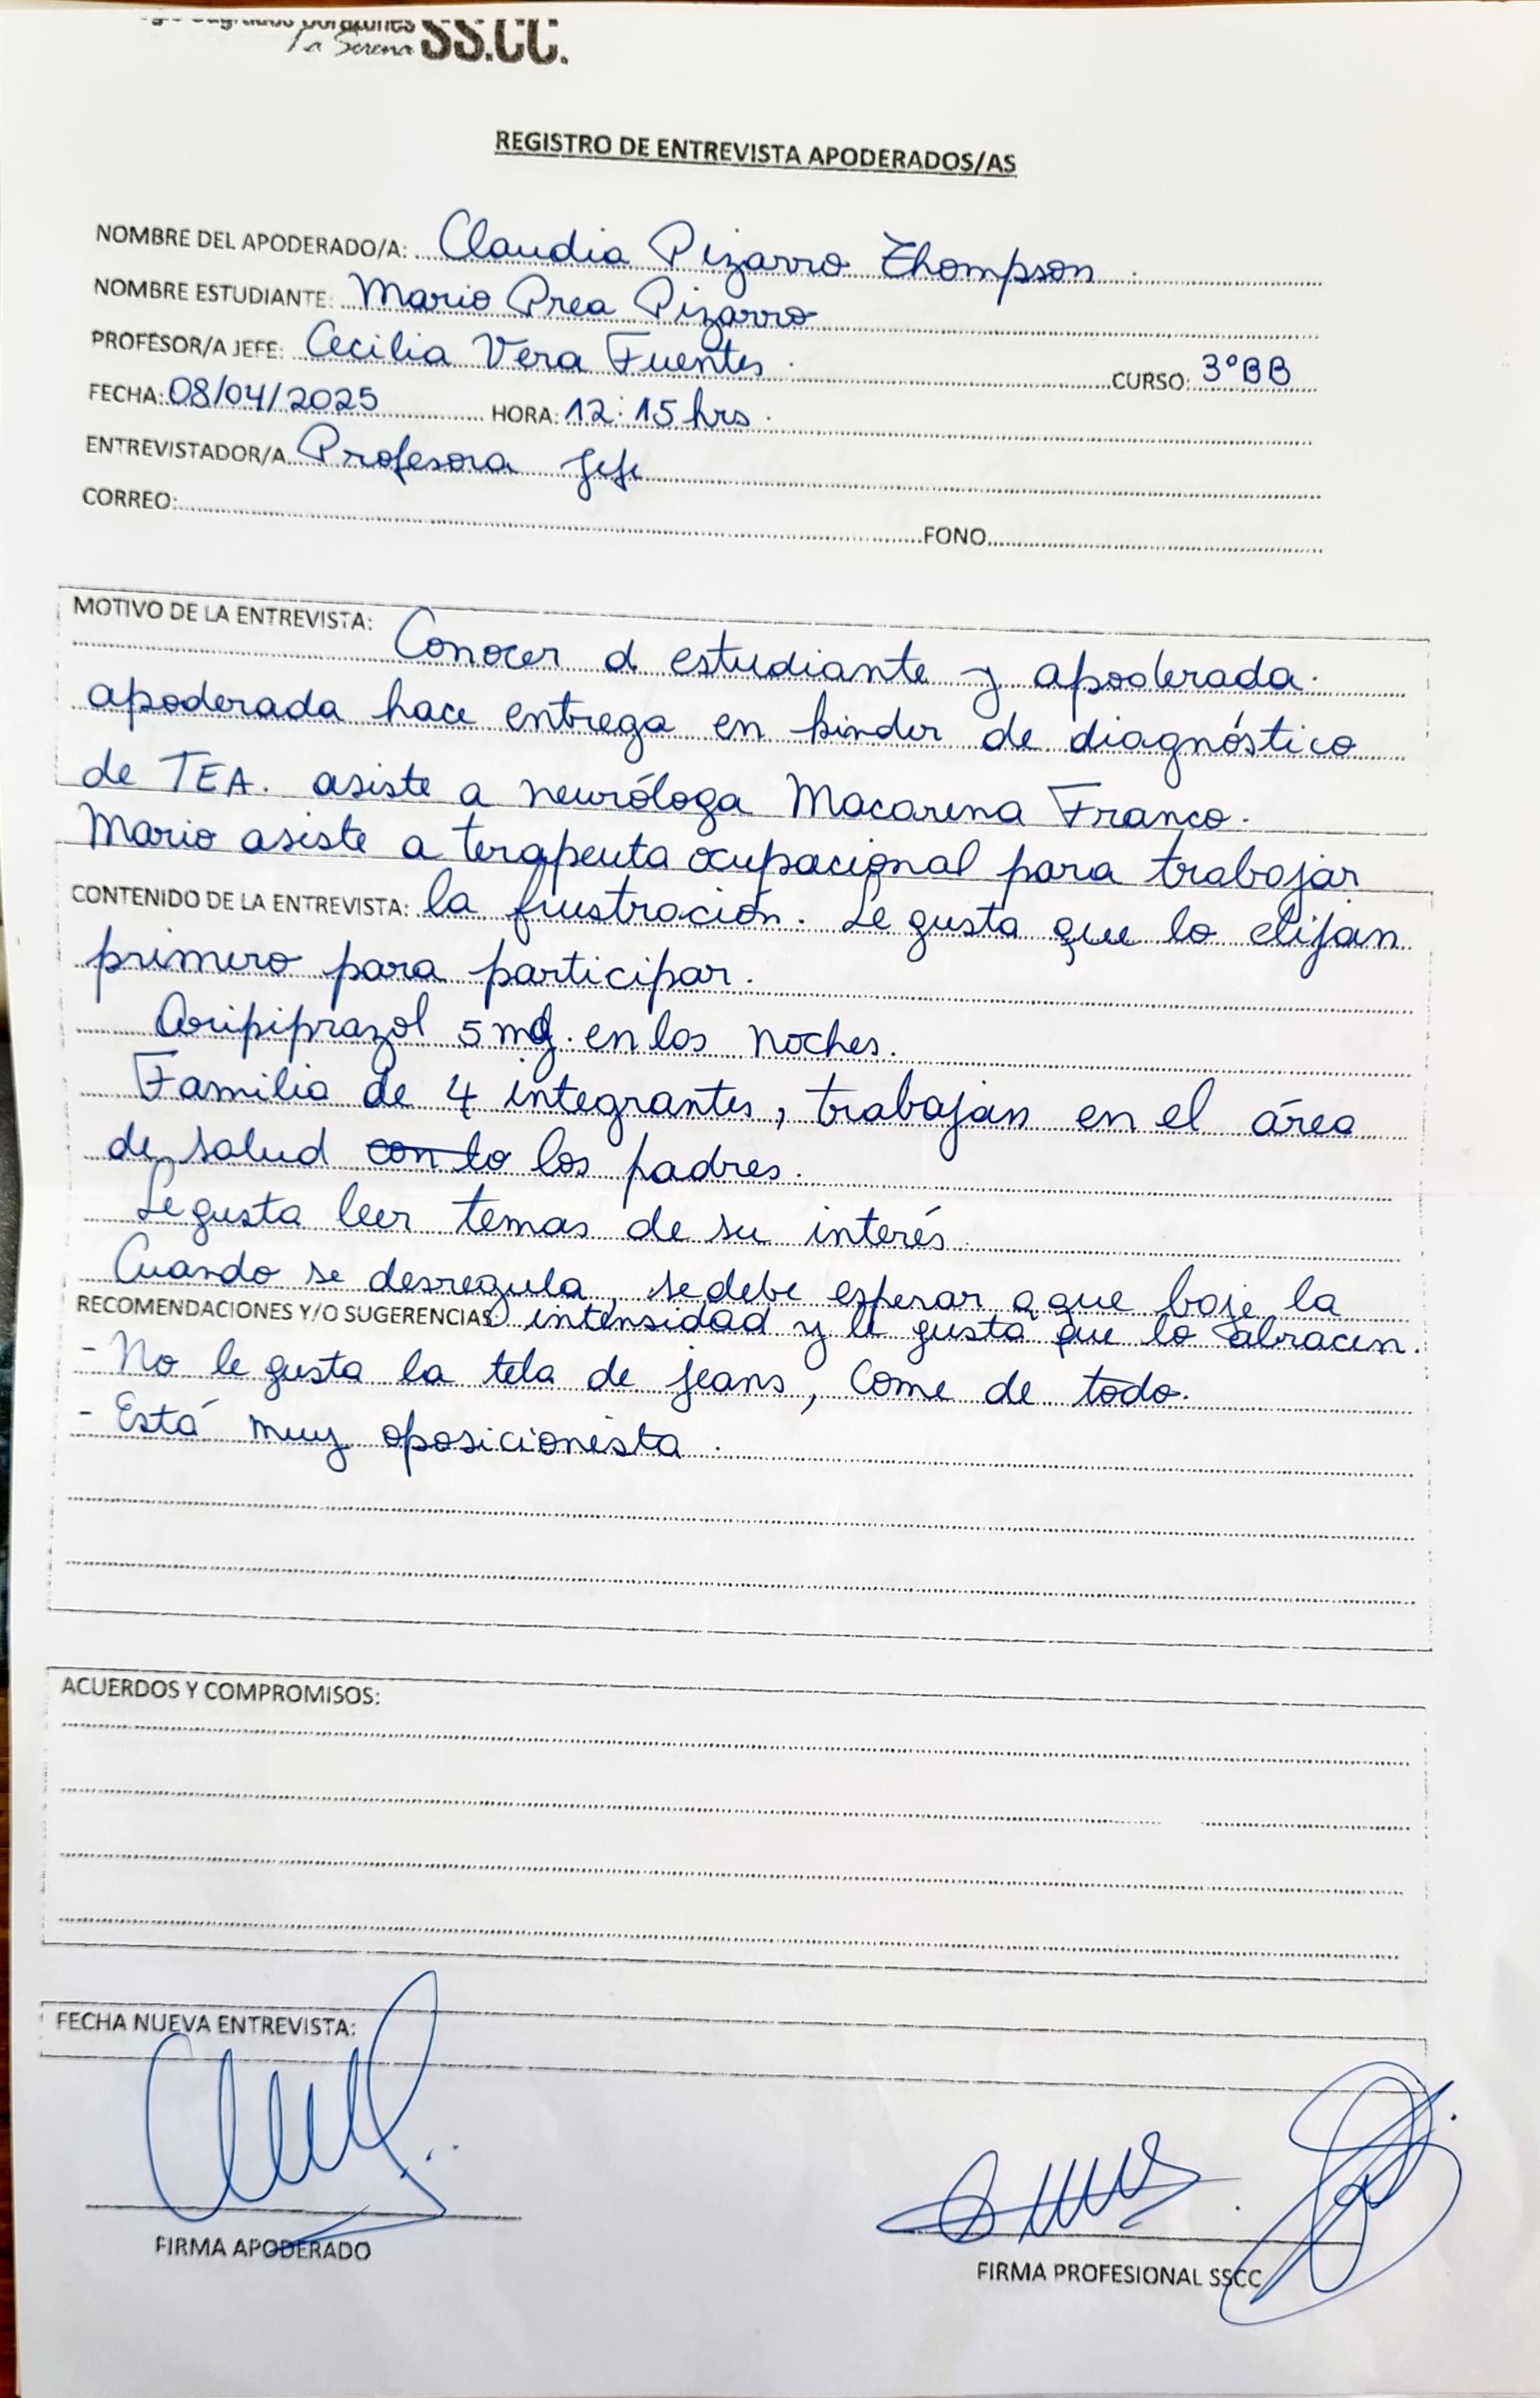 La Serena SS.CC.
REGISTRO DE ENTREVISTA APODERADOS/AS
NOMBRE DEL APODERADO/A: Claudia Pizarro Thompson.
NOMBRE ESTUDIANTE: Mario Prea Pizarro
PROFESOR/A JEFE: Cecilia Vera Fuentes. CURSO: 3°BB
FECHA: 08/04/2025 HORA: 12:15 hrs.
ENTREVISTADOR/A Profesora jefe
CORREO: FONO
MOTIVO DE LA ENTREVISTA: Conocer al estudiante y apoderada.
apoderada hace entrega en kinder de diagnóstico
de TEA. asiste a neuróloga Macarena Franco.
Mario asiste a terapeuta ocupacional para trabajar
CONTENIDO DE LA ENTREVISTA: la frustración. Le gusta que lo elijan
primero para participar.
Aripiprazol 5 mg. en las noches.
Familia de 4 integrantes, trabajan en el área
de salud los padres.
Le gusta leer temas de su interés.
Cuando se desregula, se debe esperar a que baje la
RECOMENDACIONES Y/O SUGERENCIAS: intensidad y le gusta que lo abracen.
- No le gusta la tela de jeans, come de todo.
- Está muy oposicionista.
ACUERDOS Y COMPROMISOS:
FECHA NUEVA ENTREVISTA:
FIRMA APODERADO
FIRMA PROFESIONAL SSCC